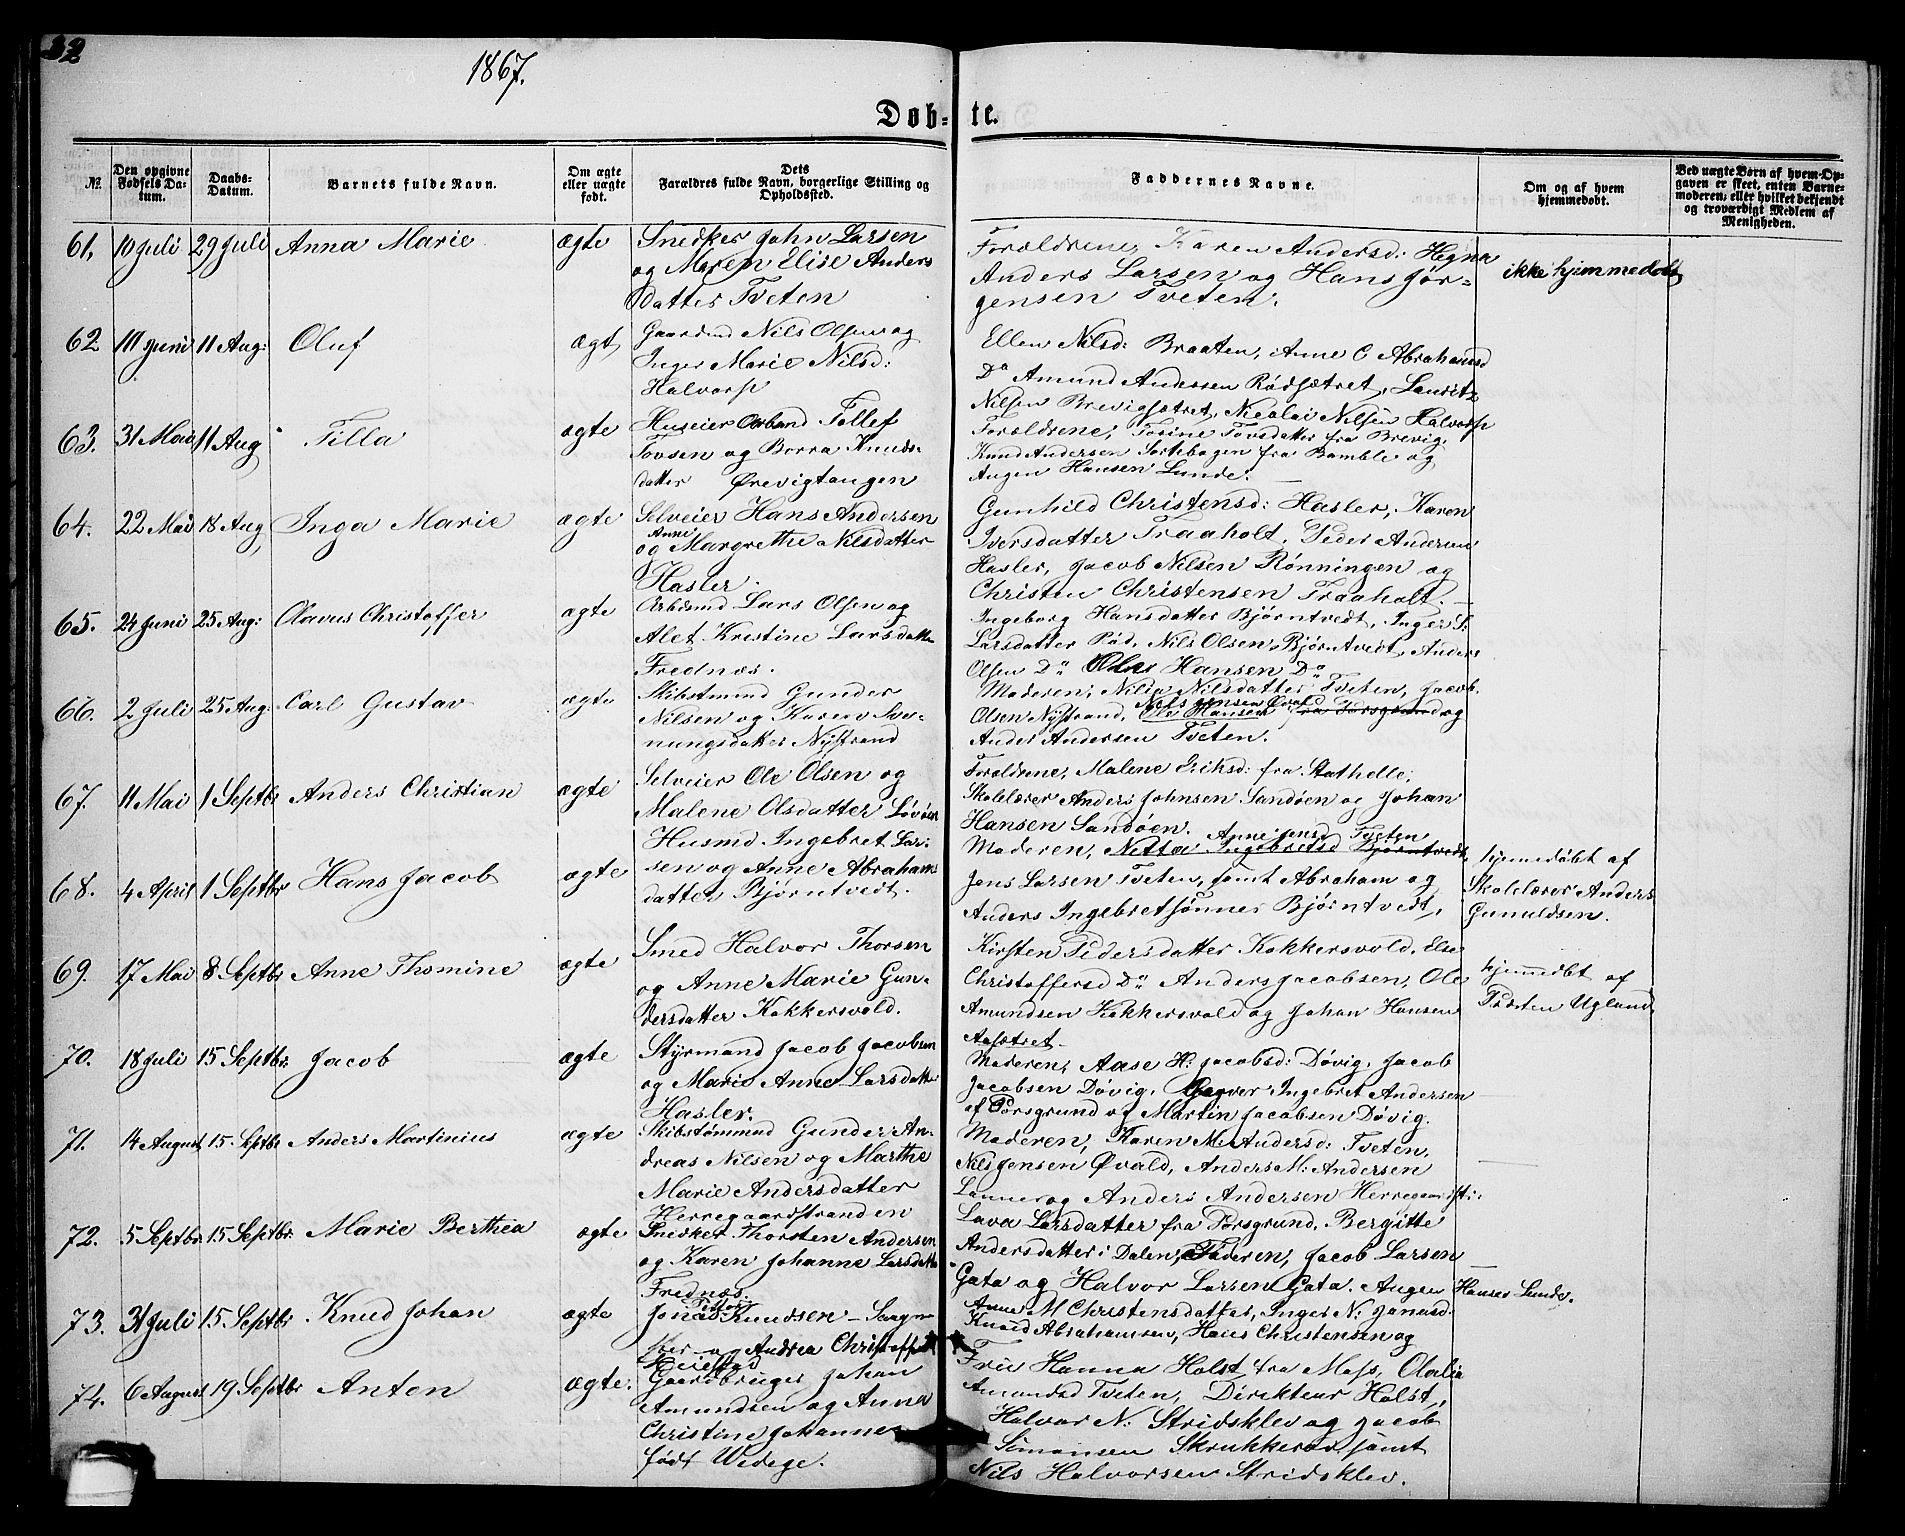 32
1867.
Døb-
te.
№.
Den opgivne Fødsels Datum.
Daabs-Datum.
Barnets fulde Navn.
Om ægte eller uægte født.
Dets Forældres fulde Navn, borgerlige Stilling og Opholdssted.
Faddernes Navne.
Om og af hvem hjemmedøbt.
Ved uægte Børn af hvem Opgaven er skeet, enten Barnemoderen, eller hvilket bekjendt og troværdigt Medlem af Menigheden.
61, 10 Juli 29 Juli Anna Marie ægte
Snedker John Larsen
og Maren Elise Anders
datter Tveten
Forældrene, Karen Andersd: Hegna
Anders Larsen og Hans Jør-
gensen Tveten.
ikke hjemmedøbt
62 10 Juni 11 Aug: Oluf ægt
Gaardmd Nils Olsen og
Inger Marie Nilsd:
Halvorsp
Ellen Nilsd: Braaten, Anne C Abrahamsd
Do Amund Andersen Rødsætret, Lauritz
Nilsen Brevigsætret, Nicolai Nilsen Halvorsp
63. 31 Mai 11 Aug Tilla ægte
Huseier Tollef
Tovsen og Borra Knuds-
datter Ørevigtangen
Forældrene, Tosine Tovsdatter fra Brevig,
Knud Andersen Sortebogen fra Bamble og
Augen Hansen Lunde.
64. 22 Mai 18 Aug Inga Marie ægte
Selveier Hans Andersen
Anne
og Margrethe Nilsdatter
Hasler.
Gunhild Christensd: Hasler, Karen
Iversdatter Traaholt, Peder Andersen
Hasler, Jacob Nilsen Rønningen og
Christen Christensen Traaholt.
65. 24 Juni 25 Aug: Olavus Christoffer ægte
Arbdsmd Lars Olsen og
Alet Kristine Larsdatter
Frednæs.
Ingeborg Hansdatter Bjørntvedt, Inger S:
Larsdatter Rød, Nils Olsen Bjørntvedt, Anders
Olsen Do Ole Hansen Do
66. 2 Juli 25 Aug: Carl Gustav ægte
Skibstmmd Gunder
Nilsen og Karen Sve-
nungsdatter Nystrand
Moderen, Nilia Nilsdatter Tveten, Jacob
Nils Jensen Øvald
Olsen Nystrand, Ole Hansen fra Porsgrund og
Anders Andersen Tveten.
67. 11 Mai 1 Septbr Anders Christian ægte
Selveier Ole Olsen og
Malene Olsdatter Løvøen
Forældrene, Malene Eriksd: fra Stathelle,
Skolelærer Anders Johnsen Sandøen og Johan
Hansen Sandøen.
68. 4 April 1 Septbr Hans Jacob ægte
Husmd Ingebret Lar-
sen og Anne Abrahams
datter Bjørntvedt.
Anne Jensd Tveten
Moderen, Netta Ingebretsd Bjørntvedt,
Jens Larsen Tveten, samt Abraham og
Anders Ingebretsønner Bjørntvedt,
hjemmedøbt af
Skolelærer Anders
Gunuldsen.
69. 17 Mai 8 Septbr Anne Thomine ægte
Smed Halvor Thorsen
og Anne Marie Gun-
dersdatter Kokkersvold.
Kirsten Pedersdatter Kokkersvold, Else
Christoffersd Do Anders Jacobsen, Ole
Amundsen Kokkersvold og Johan Hansen
Aasætret
hjemmedøbt af
Præsten Ugland
70. 18 Juli 15 Septbr. Jacob ægte
Styrmand Jacob Jacobsen
og Marie Anne Larsdatter
Hasler.
Moderen, Aase H: Jacobsd: Døvig, Jacob
Jacobsen Døvig, Ingebret Andersen
af Porsgrund og Martin Jacobsen Døvig.
71. 14 August 15. Septbr Anders Martinius ægte
Skibstømmd Gunder An-
dreas Nilsen og Marthe
Marie Andersdatter
Herregaardstranden
Moderen, Karen M: Andersd: Tveten,
Nils Jensen Øvald, Anders M: Andersen
Lanner og Anders Andersen Herregaardst:
72. 5 Septbr. 15 Septbr. Marie Berthea ægte
Snedker Thorsten Andersen
og Karen Johanne Larsdatter
Frednæs.
Lava Larsdatter fra Porsgrund, Bergitte
Andersdatter i Dalen, Faderen, Jacob Larsen
Gata og Halvor Larsen Gata. Augen Hansen Lunde.
73. 31 Juli 15 Septbr. Knud Johan ægte
Jonas Knudsen
og Andrea Christoffersd
Anne M Christensdatter, Inger N. Jonasd:
Knud Abrahamsen, Hans Christensen og
74. 6 August 19 Septbr Anton ægte.
Gaardbruger Johan
Amundsen og Anna
Christine Johanne
født Wedege.
Frue Hanna Holst fra Moss, Olalia
Amundsd Tveten, Direkteur Holst,
Halvor N. Stridsklev og Jacob
Simonsen Skrukkerød samt
Nils Halvorsen Stridsklev.